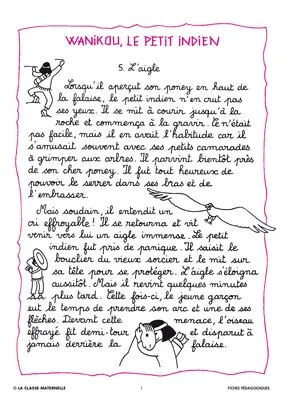 WANIKOU, LE PETIT INDIEN
5. L'aigle
Lorsqu'il aperçut son poney en haut de
la falaise, le petit indien n'en crut pas
ses yeux. Il se mit à courir jusqu'à la
roche et commença à la gravir. Ce n'était
pas facile, mais il en avait l'habitude car il
s'amusait souvent avec ses petits camarades
à grimper aux arbres. Il parvint bientôt près
de son cher poney. Il fut tout heureux de
pouvoir le serrer dans ses bras et de
l'embrasser.
Mais soudain, il entendit un
cri effroyable ! Il se retourna et vit
venir vers lui un aigle immense. Le petit
indien fut pris de panique. Il saisit le
bouclier du vieux sorcier et le mit sur
sa tête pour se protéger. L'aigle s'éloigna
aussitôt. Mais il revint quelques minutes
plus tard. Cette fois-ci, le jeune garçon
eut le temps de prendre son arc et une de ses
flèches. Devant cette menace, l'oiseau
effrayé fit demi-tour et disparut à
jamais derrière la falaise.
© LA CLASSE MATERNELLE
1
FICHES PÉDAGOGIQUES